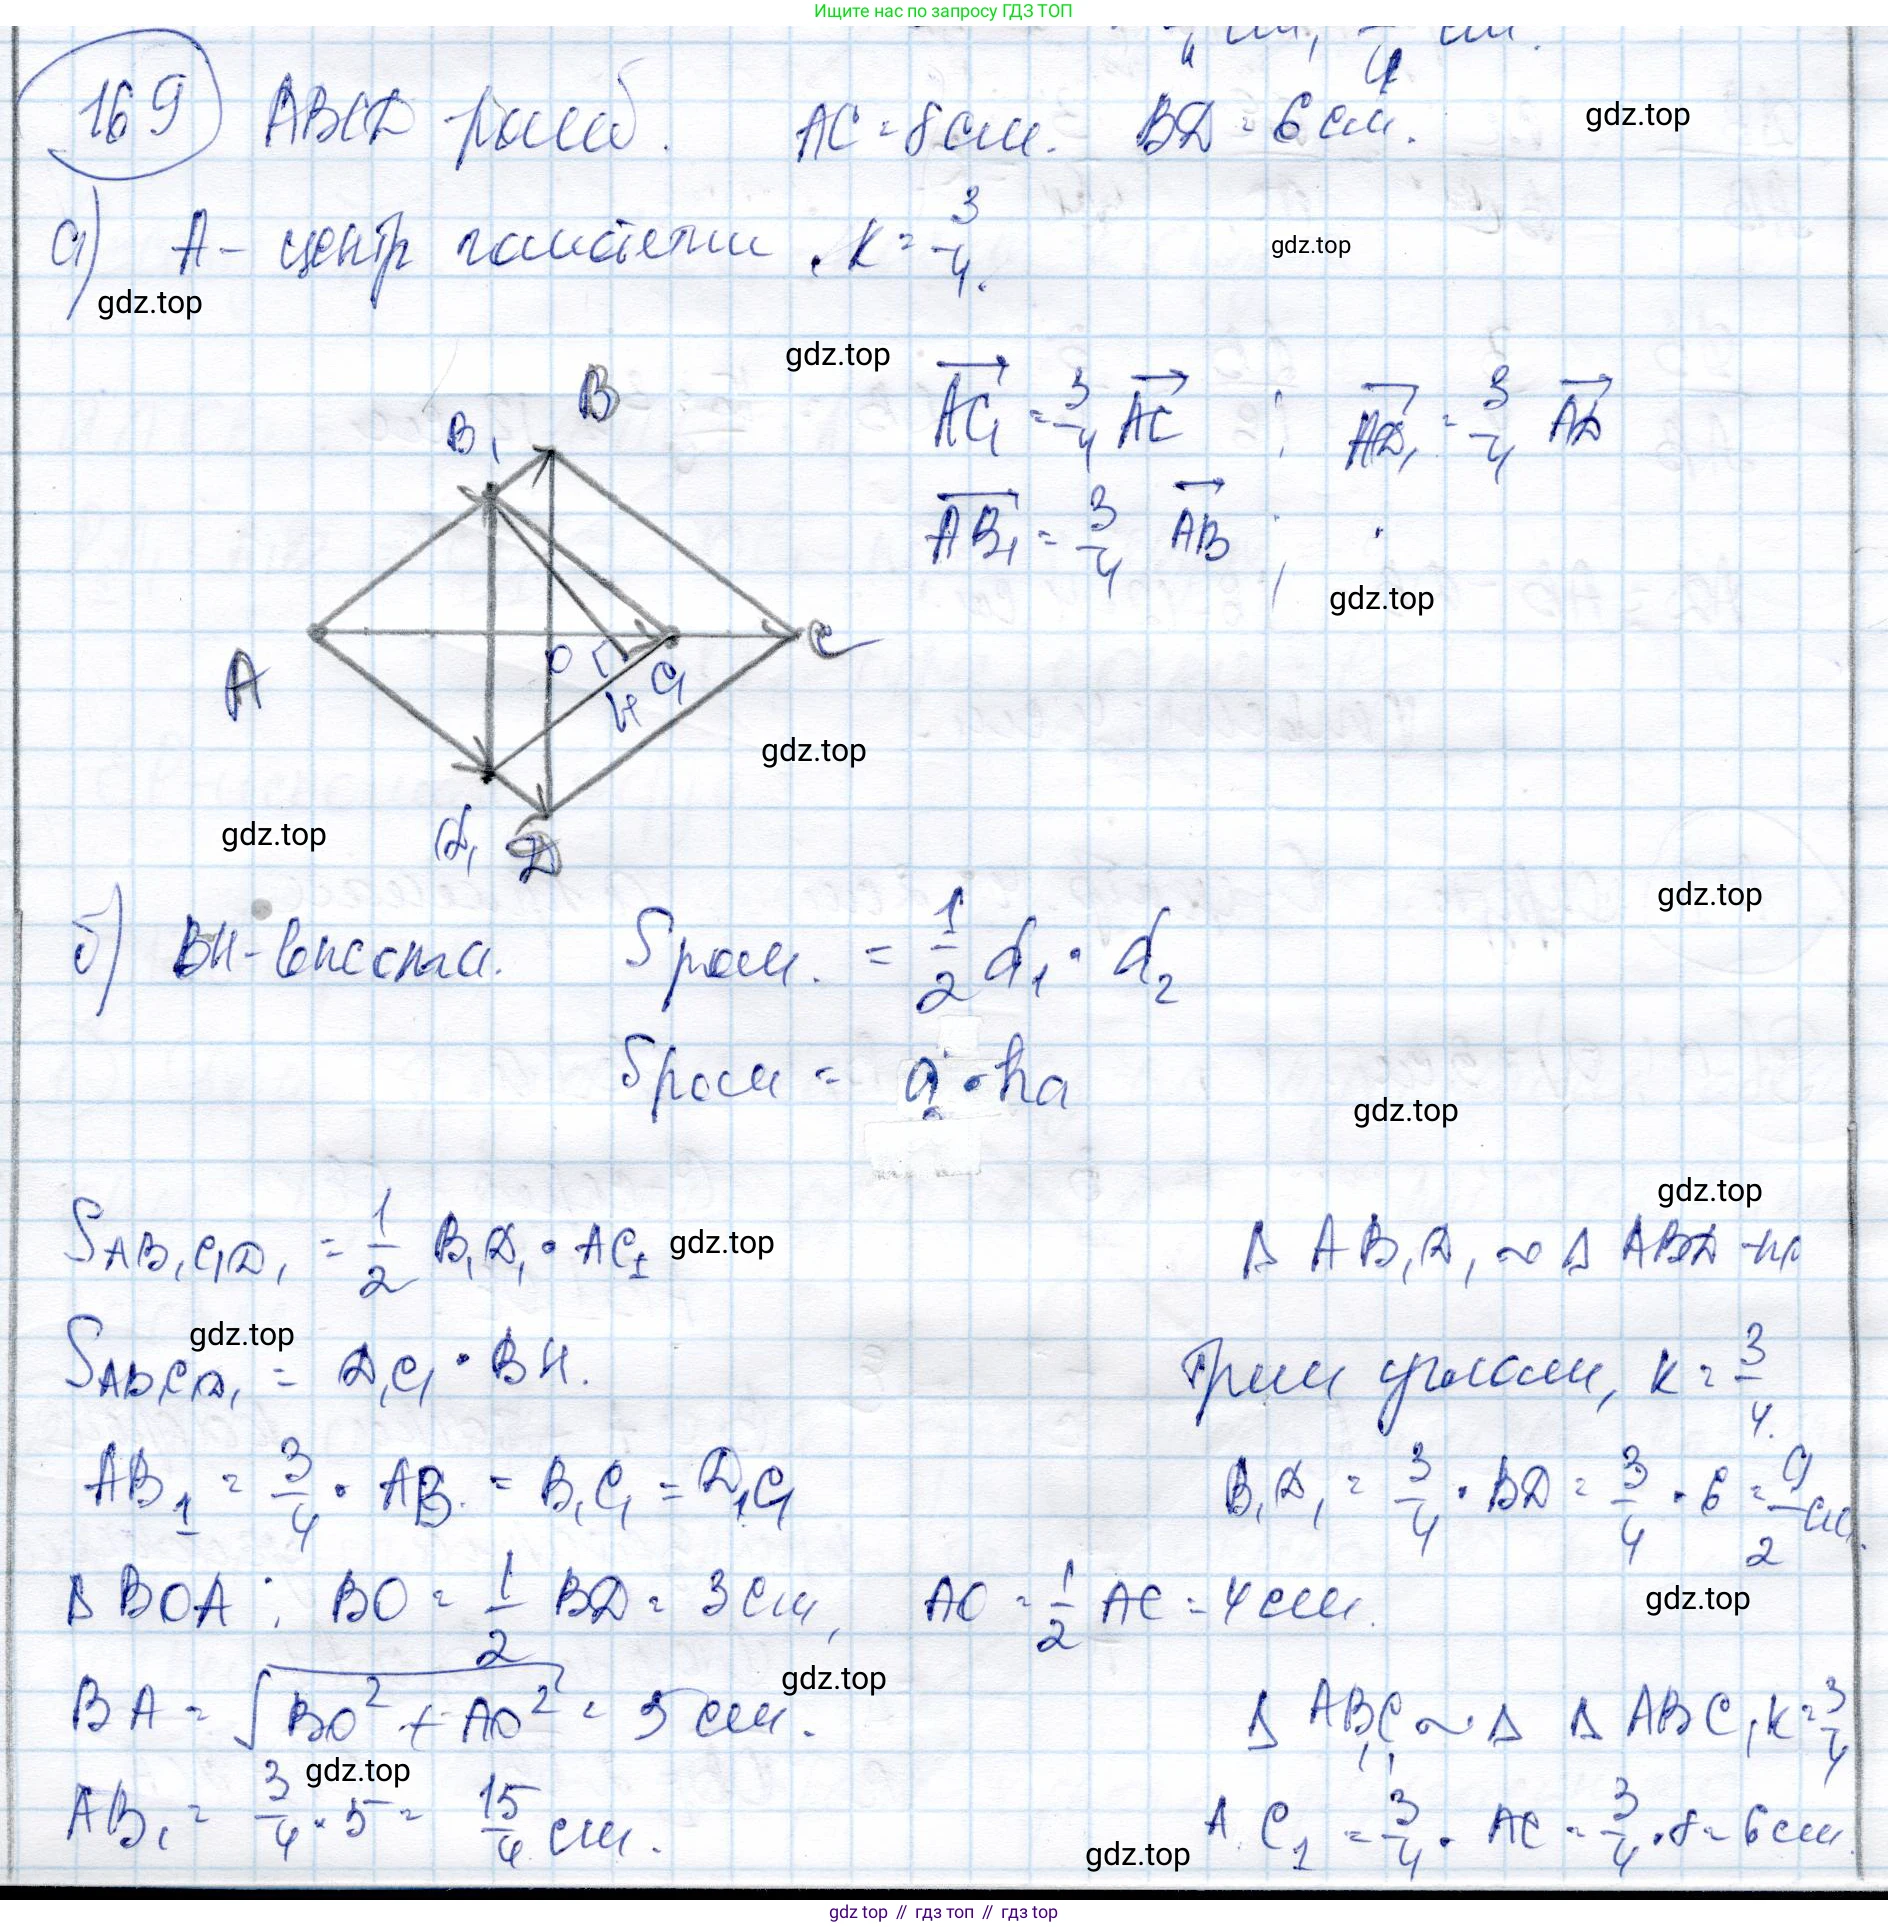 Ищите нас по запросу ГДЗ ТОП
169 ABCD ромб. AC = 8 см. BD = 6 см. gdz.top
а) A - центр гомотетии. K = 3/4. gdz.top
gdz.top
gdz.top
AC₁ = 3/4 AC ; AD₁ = 3/4 AD
AB₁ = 3/4 AB ;
gdz.top
B
B₁
A
O
H
C₁
C
gdz.top
gdz.top
d₁ D
gdz.top
б) BH - высота. Sром. = 1/2 d₁ · d₂
Sром = a · ha
gdz.top
gdz.top
S AB₁C₁D₁ = 1/2 B₁D₁ · AC₁ gdz.top
Δ AB₁D₁ ~ Δ ABD по
gdz.top
S AB₁C₁D₁ = D₁C₁ · BH.
трем углам, K = 3/4.
AB₁ = 3/4 · AB = B₁C₁ = D₁C₁
B₁D₁ = 3/4 · BD = 3/4 · 6 = 9/2 см.
Δ BOA : BO = 1/2 BD = 3 см, AO = 1/2 AC = 4 см. gdz.top
gdz.top
BA = √BO² + AO² = 5 см.
Δ AB₁C₁ ~ Δ Δ ABC, K = 3/4
gdz.top
AB₁ = 3/4 · 5 = 15/4 см.
AC₁ = 3/4 · AC = 3/4 · 8 = 6 см
gdz.top
gdz top // гдз топ // гдз top